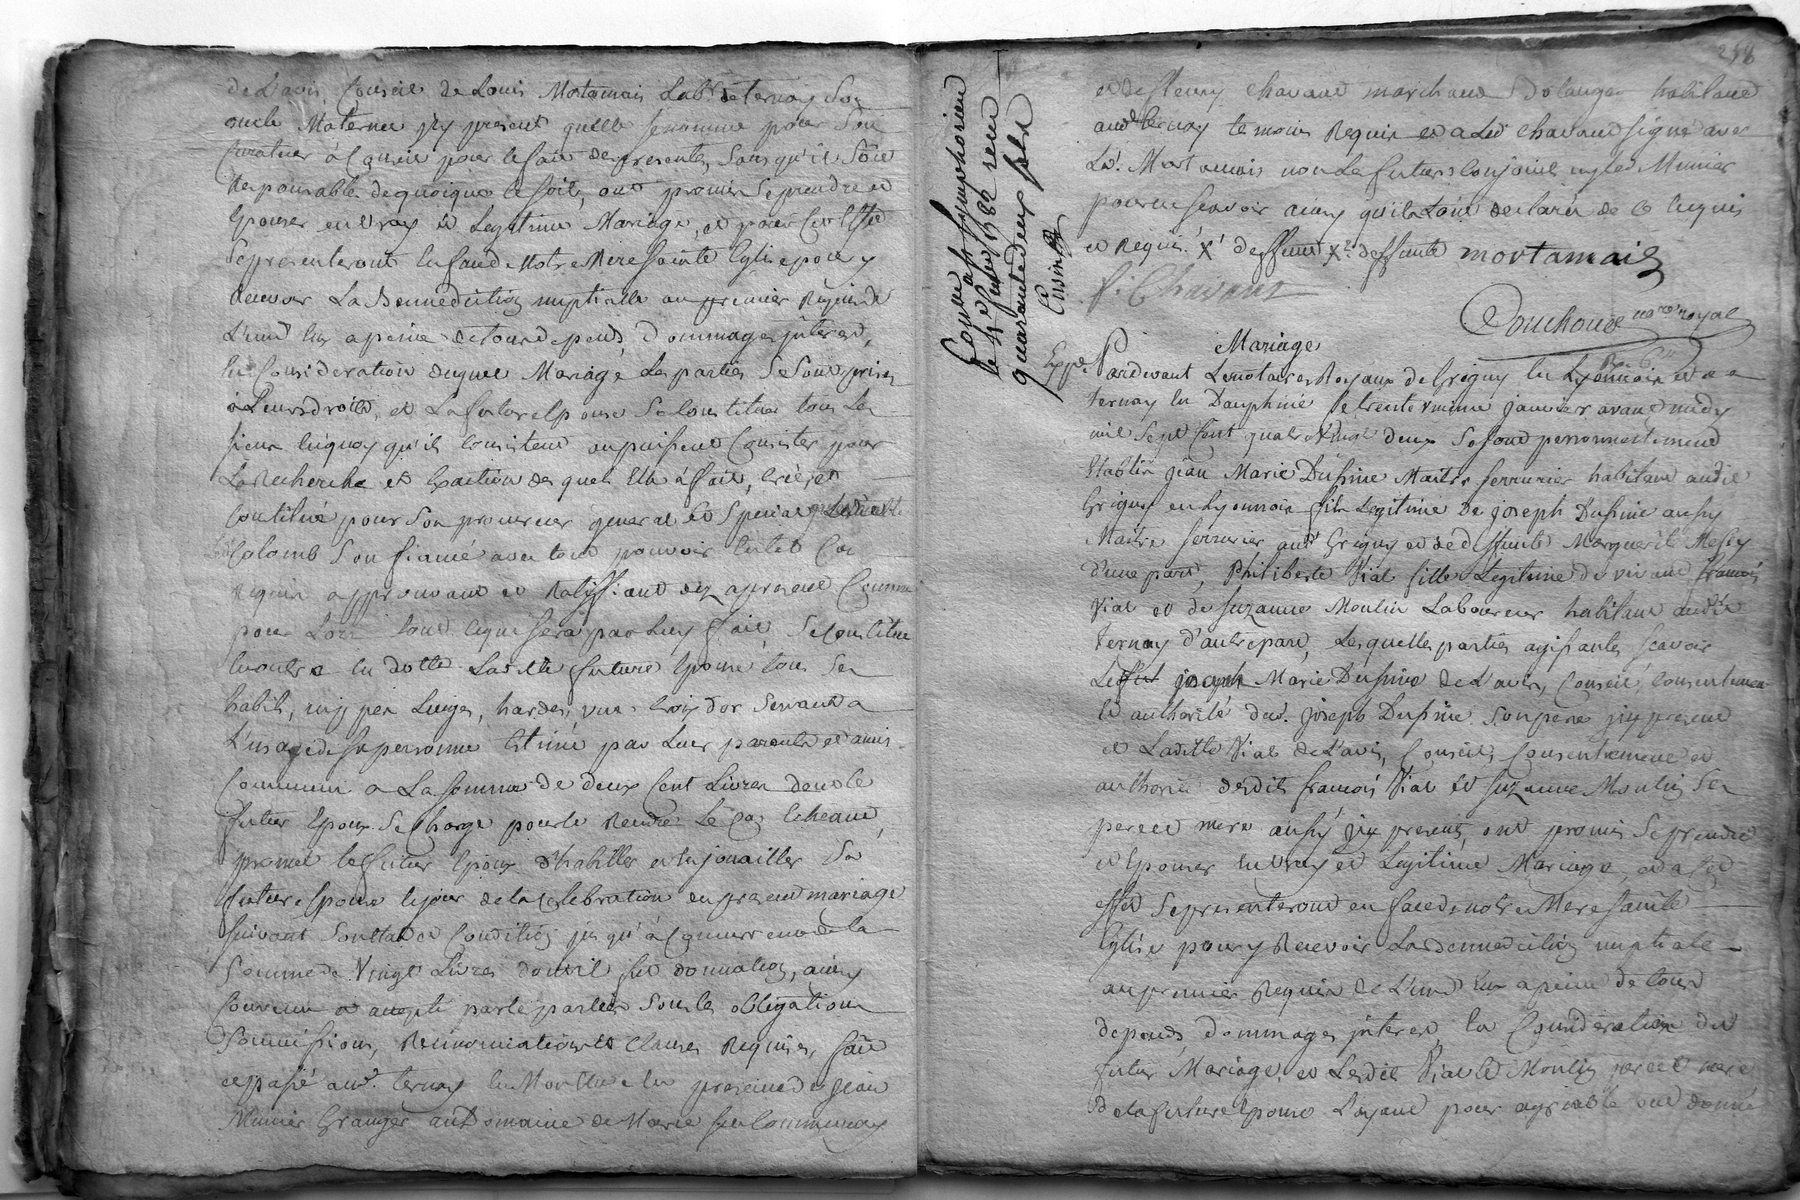 de L'avis Conseil de Louis Mortamais Lab.r de ternay Son
oncle Maternel jcy present quelle se nomme pour Son
Curateur à Conseil pour le fait des presentes, Sans qu'il Soit
Responsable de quoique ce soit, ont promis se prendre et
Epouser en vray et Legitime Mariage, et pour Cet Effet
Se presenteront En face de Notre Mere Sainte Eglise pour y
Recevoir La Bennediction nuptialle au premier Requis de
L'un d'eux a peine de tous depends, Dommages jnterest,
En Consideration duquel Mariage Les parties Se Sont prises
à Leurs droits, et La future Epouse Se Constitue tous Les
siens Enquoy qu'ils Consistent ou puissent Consister pour
La Recherche et Exaction desquels Elle à fait, Créé et
Constitué pour Son procureur general et Special
Colomb Son fiancé avec tout pouvoir En tel Cas
Requis approuvant et Ratiffiant dez apresent Comme
pour Lors tout ce que sera par Luy fait, Se Constitue
En outre En dotte Laditte future Epouse tous Ses
habits, linges, hardes, une Croix d'or Servant a
L'usage de sa personne Estimé par Leurs parents et amis
Communs a La Somme de deux Cent Livres dont le
futur Epoux Se Charge pour le Rendre Le Cas Echeant,
promet le futur Epoux d'habiller et Enjouailler Sa
future Epouse le jour de la Celebration du present mariage
Suivant Son Etat et Condition jusqu'à Concurrence de la
Somme de Vingt Livres dont il fait donnation, ainsy
Convenu et accepté par les parties Sous les obligations
Soumissions, Renonciations et Clauses Requises, fait
et passé aud. ternay En Nostre Etude En presence de Jean
Munier Granger au Domaine de Marie sur Communay
258
et de fleury Chavant marchand Boulanger habitant
aud. ternay temoins Requis et a Led. Chavant signé avec
Led. Mortamais non Les futurs Conjoints ny led. Munier
pour ne Scavoir ainsy qu'ils L'ont declaré de Ce Enquis
et Requis. X.1 deffunt X.2 deffunte mortamais
f. Chavant
Couchoud no.re royal
Controllé a St Symphorien
le 1782 reçu
quarante deux sols
Expé.
Mariage
Pardevant Les notaires Royaux de Grigny En Lyonnois et de
ternay En Dauphiné Le trente unieme janvier avant midy
mil Sept Cent quatre Vingt deux Se Sont personnellement
Etablis jean Marie Dufsine Maitre Serrurier habitant audit
Grigny en Lyonnois fils Legitime de joseph Dufsine aussy
Maitre Serrurier aud. Grigny et de deffunte Marguerite Messy
d'une part, Philiberte Vial fille Legitime de vivant francois
Vial et de Suzanne Moulin Laboureur habitant audit
ternay d'autre part, Lesquelles parties agissantes Scavoir
Ledit Marie Dufsine de L'avis, Conseil, Consentement
et authorité dud. joseph Dufsine Son pere jcy present
et Laditte Vial de L'avis, Conseil, Consentement et
authorité desdits francois Vial et Suzanne Moulin Ses
pere et mere aussy jcy presents, ont promis Se prendre
et Epouser En vray et Legitime Mariage, et a Cet
effet Se presenteront en face de notre Mere Sainte
Eglise pour y Recevoir La Bennediction nuptiale
au premier Requis de L'un d'Eux a peine de tous
depends, Dommages jnterest, En Consideration du
futur Mariage, et Lesdits Vial et Moulin pere et mere
de la future Epouse L'ayant pour agreable ont donné